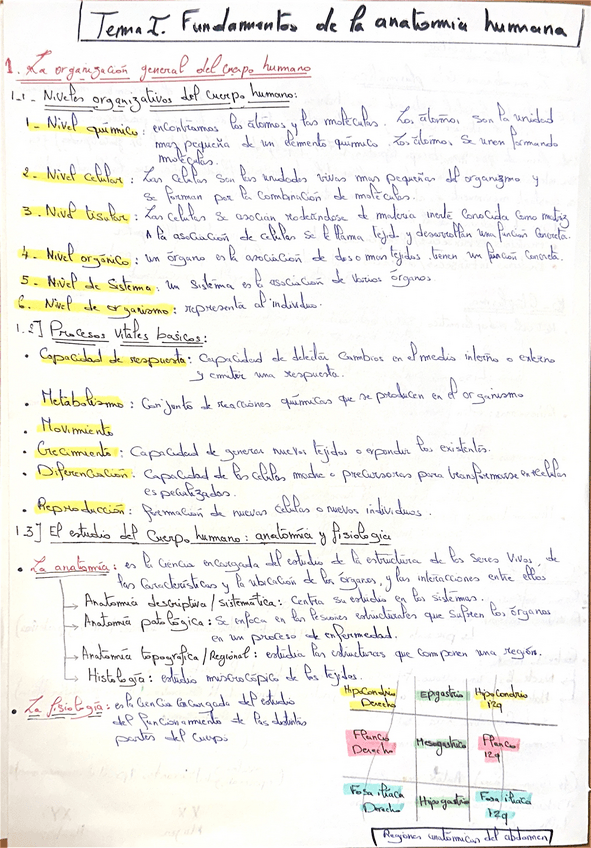 Tema I. Fundamentos de la anatomia humana
1. La organización general del cuerpo humano
1.1- Niveles organizativos del cuerpo humano:
1- Nivel químico: encontramos los átomos y las moléculas. Los átomos son la unidad
mas pequeña de un elemento químico. Los átomos se unen formando
moléculas.
2- Nivel celular: Las celulas son las unidades vivas mas pequeñas del organismo y
se forman por la combinación de moléculas.
3- Nivel tisular: Las celulas se asocian rodeándose de materia inerte conocida como matriz
A la asociación de celulas se le llama tejido y desarrollan una función concreta.
4- Nivel orgánico: un órgano es la asociación de dos o mas tejidos, tienen un función concreta.
5- Nivel de Sistema: un sistema es la asociación de varios órganos.
6. Nivel de organismo: representa al individuo.
1.2] Procesos vitales basicos:
• Capacidad de respuesta: Capacidad de detectar cambios en el medio interno o externo
y emitir una respuesta.
• Metabolismo: Conjunto de reacciones químicas que se producen en el organismo
• Movimiento
• Crecimiento: Capacidad de generar nuevos tejidos o expandir los existentes.
• Diferenciación: Capacidad de las celulas madre o precursoras para transformarse en celulas
especializadas.
• Reproducción: formación de nuevas celulas o nuevos individuos.
1.3] El estudio del cuerpo humano: anatomía y fisiología
• La anatomía: es la ciencia encargada del estudio de la estructura de los seres vivos, de
las características y la ubicación de los órganos, y las interacciones entre ellos
→ Anatomía descriptiva/sistemática: Centra su estudio en los sistemas.
→ Anatomía patológica: Se enfoca en las lesiones estructurales que sufren los órganos
en un proceso de enfermedad.
→ Anatomía topografica/Regional: estudia las estructuras que componen una región.
→ Histología: estudio microscópico de los tejidos.
• La fisiología: es la ciencia encargada del estudio
del funcionamiento de las distintas
partes del cuerpo
Hipocondrio Derecho Epigastrio Hipocondrio izq
Flanco Derecho Mesogastrio Flanco izq
Fosa ilíaca Derecha Hipogastrio Fosa ilíaca izq
Regiones anatómicas del abdomen